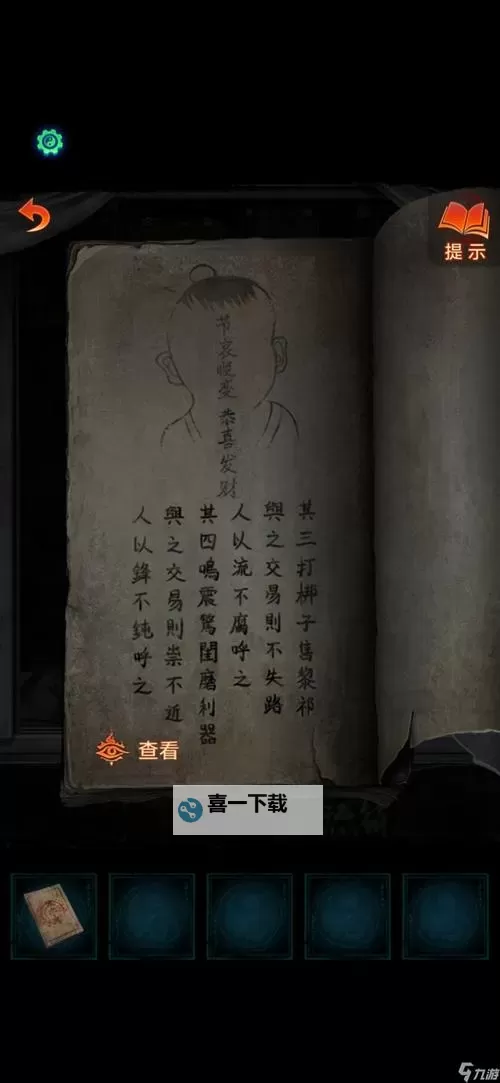 提示
节哀顺变 恭喜发财
其三打梆子售黎祁
與之交易則不失路
人以流不腐呼之
其四鳴震驚閨磨利器
與之交易則祟不近
人以鋒不鈍呼之
查看
喜一下载
九游